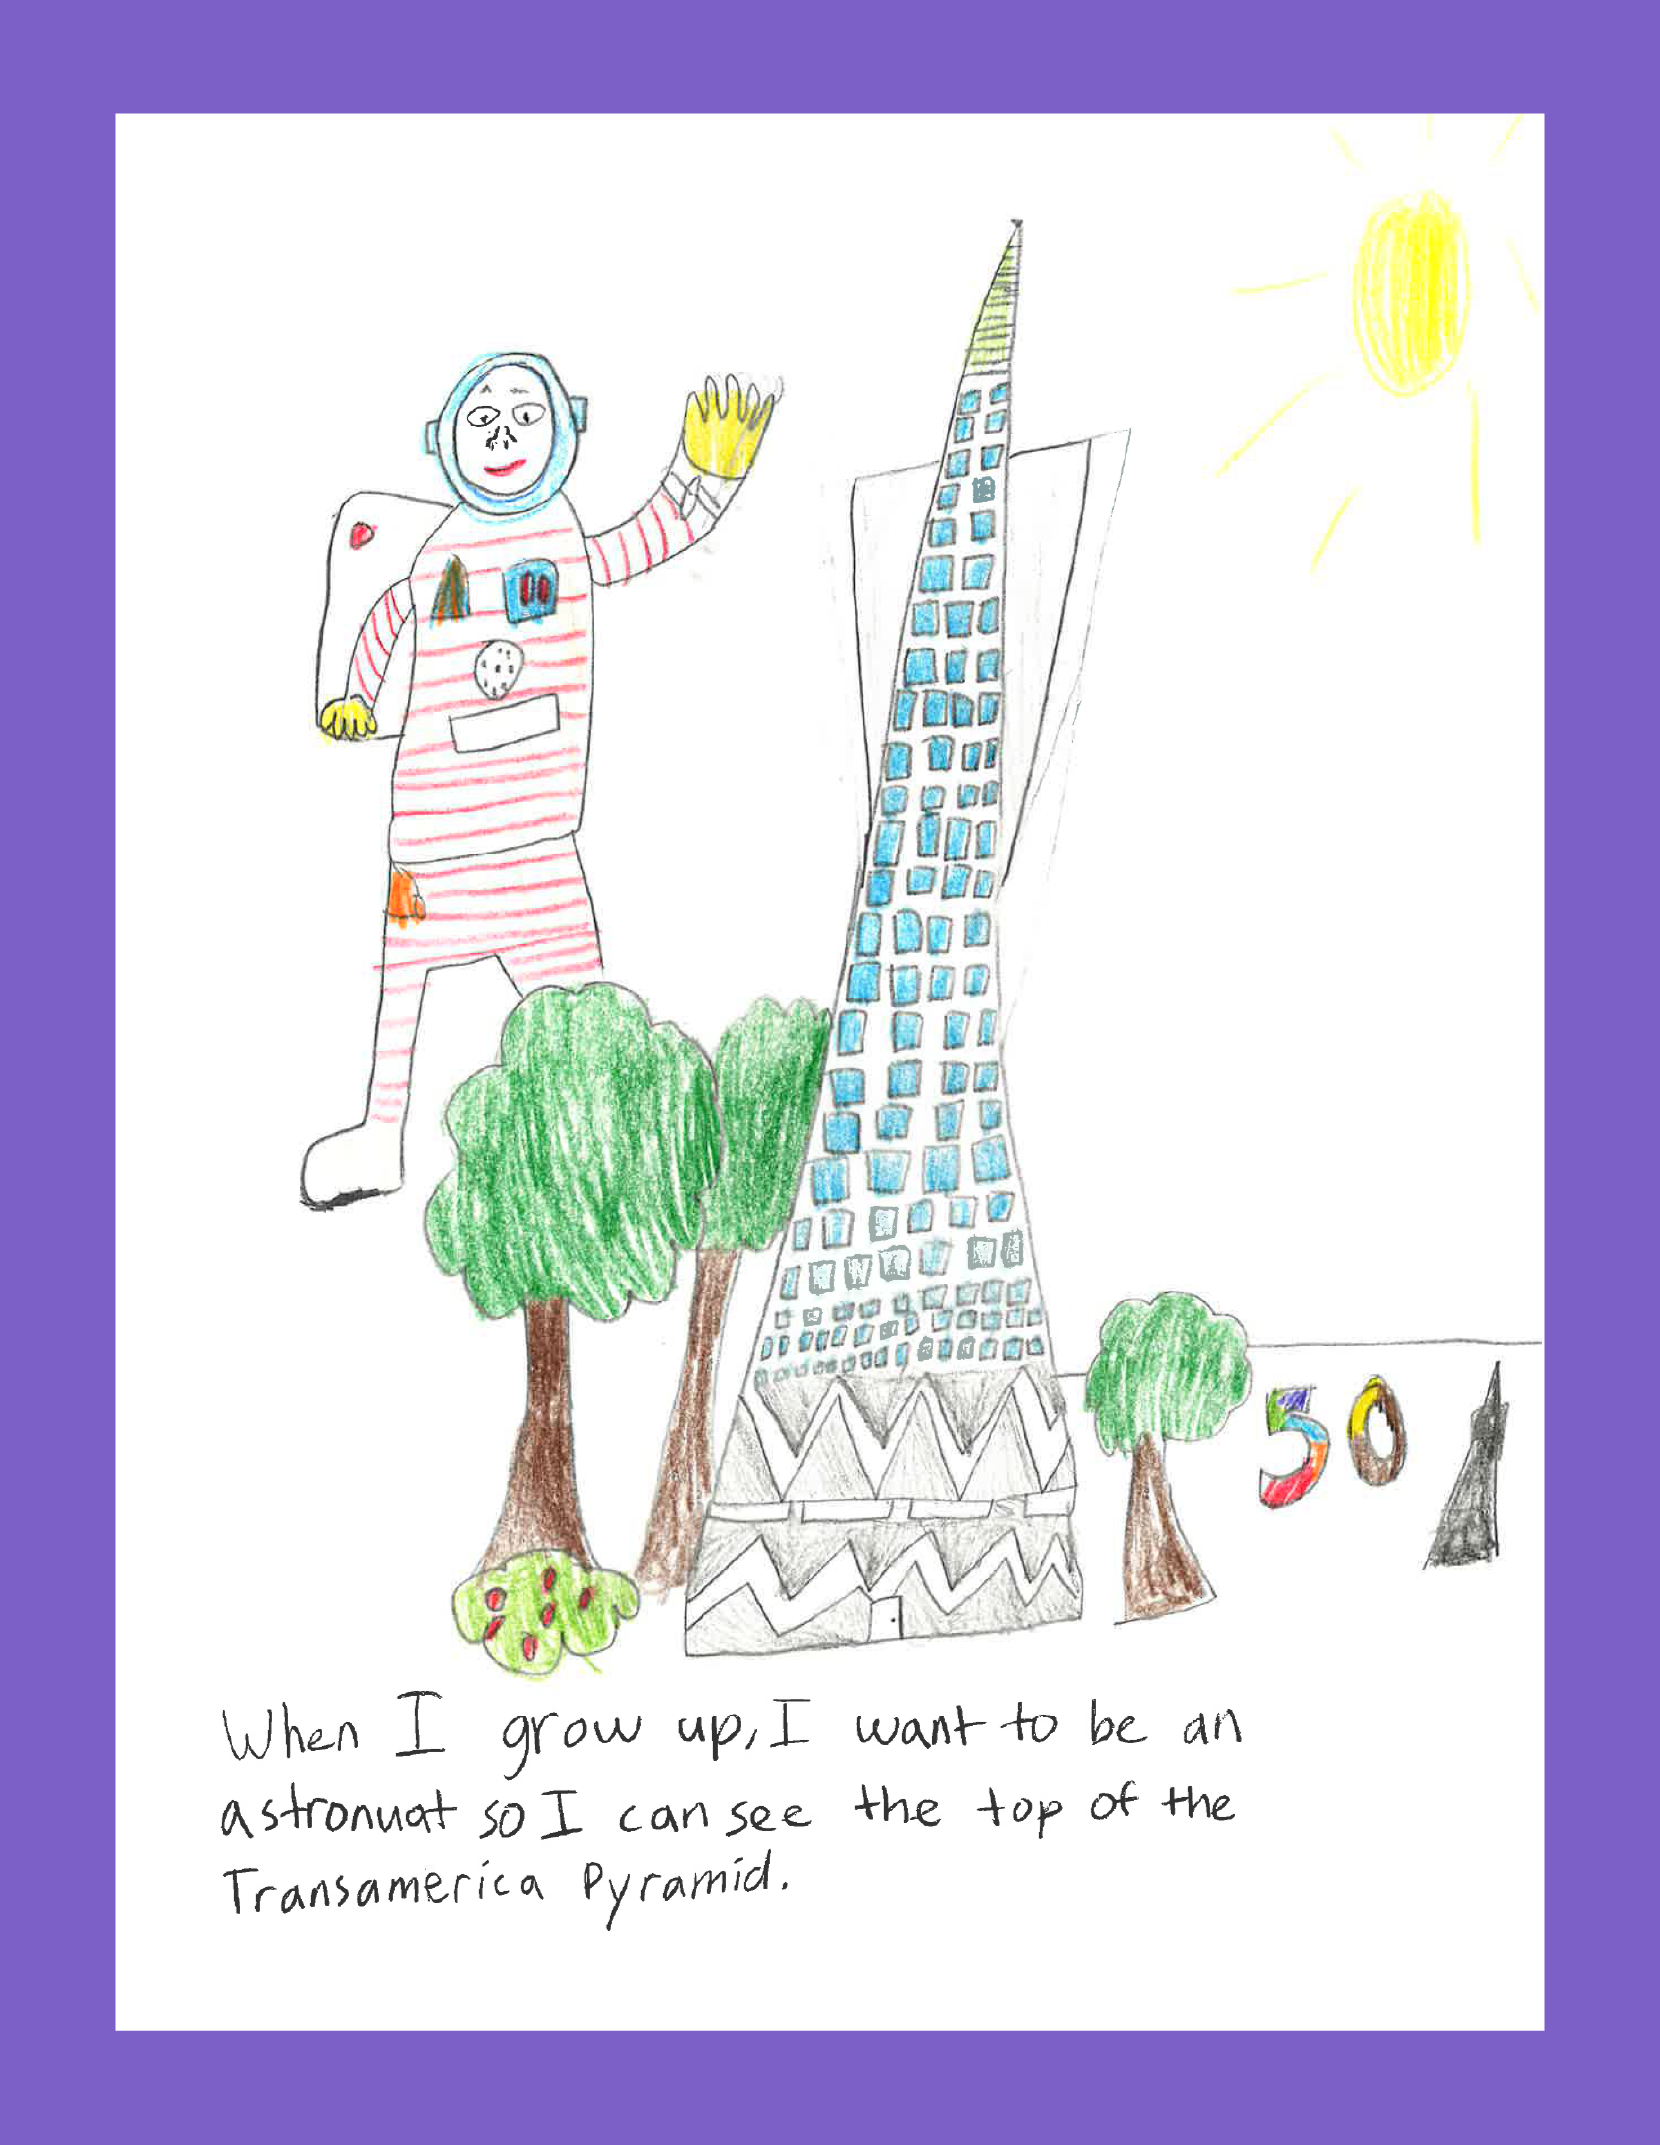 50
When I grow up, I want to be an
astronuat so I can see the top of the
Transamerica Pyramid.